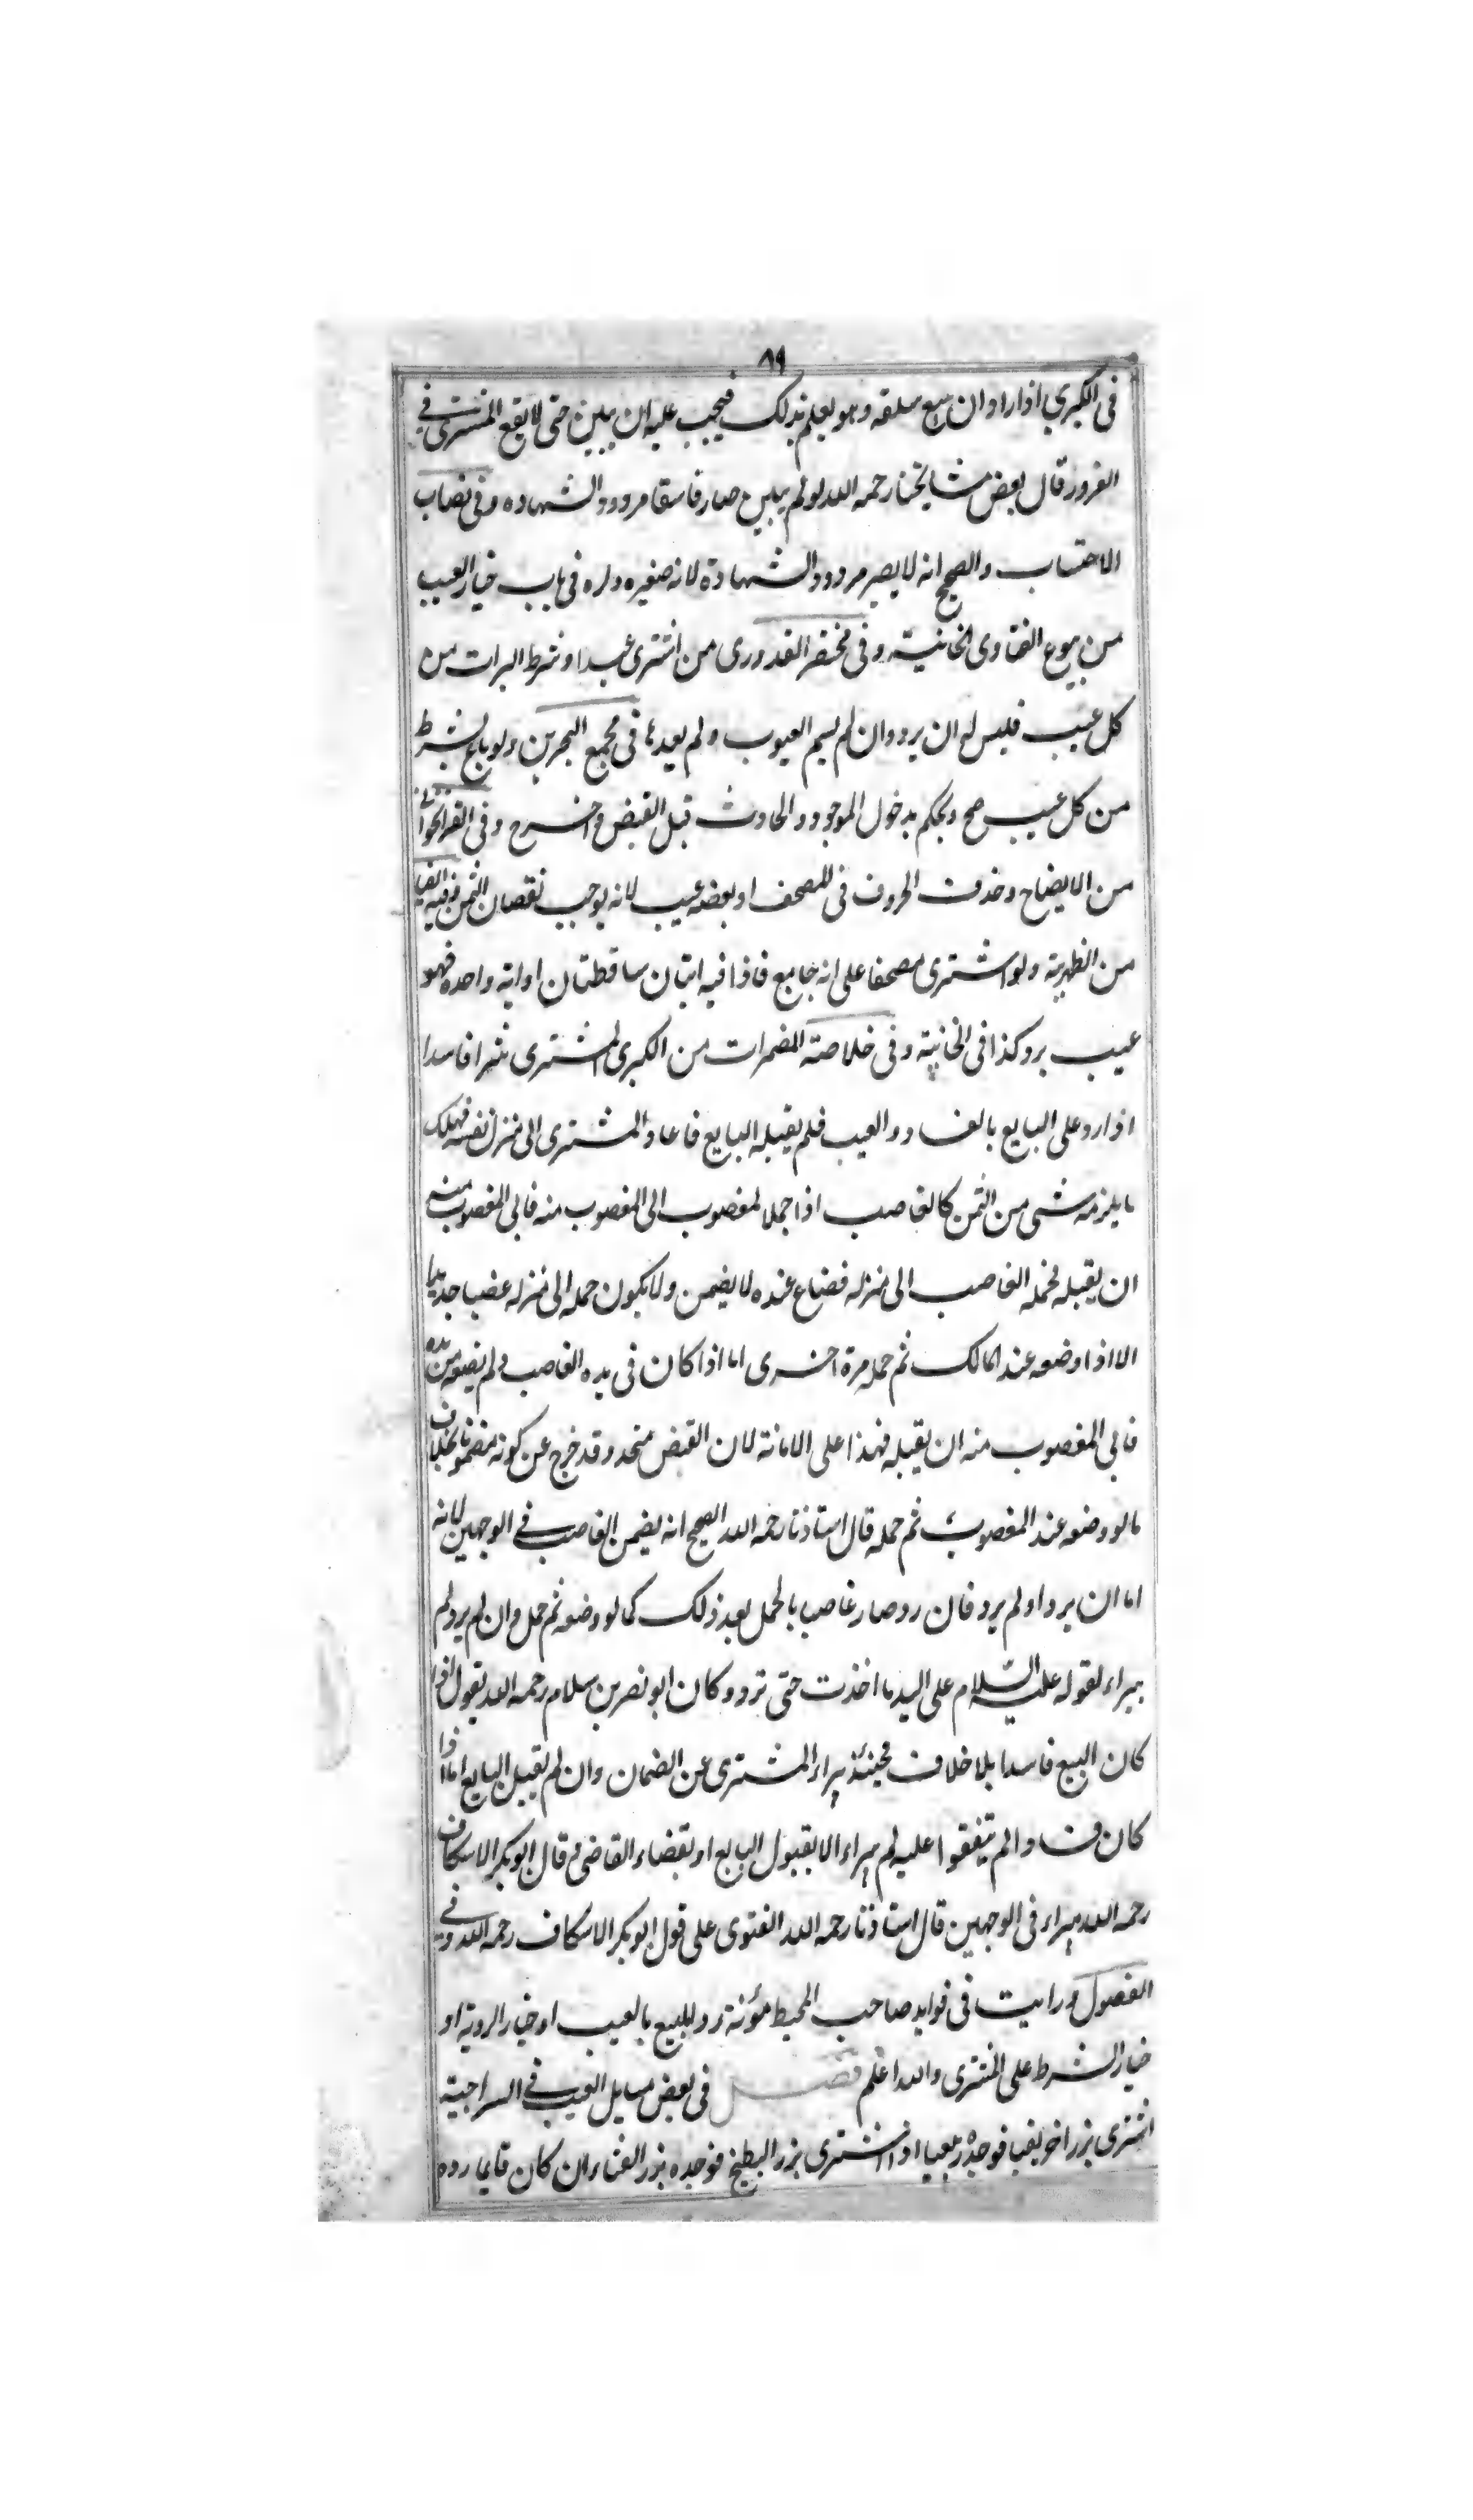 ٨٩
فى الكبرى اذا اراد ان يبيع سلعة وهو يعلم بذلك فيجب عليه ان يبين حتى لا يقع المشترى فى
الغرور قال بعض مشايخنا رحمه الله لو لم يبين صار فاسقا مردود الشهاده وفى نصاب
الاحتساب والصحيح انه لا يصير مردود الشهادة لانه صغيره وله فى باب خيار العيب
من بيوع الفتاوى الخانية وفى مختصر القدورى من اشترى عبدا وشرط البرات من
كل عيب فليس له ان يرد وان لم يسم العيوب ولم يعدها فى مجمع البحرين ولو باع بشرط
من كل عيب صح ويحكم بدخول الموجود والحادث قبل القبض واخرج وفى القراخوانى
من الايضاح وحذف الحروف فى المصحف او بعضه عيب لانه يوجب نقصان الثمن وفيه ايضا
من الظهيرية ولو اشترى مصحفا على انه جامع فاذا فيه ايتان ساقطتان او اية واحده فهو
عيب يرد كذا فى الخانية وفى خلاصة المضمرات من الكبرى المشترى شرا فاسدا
اذا رد على البايع بالفساد والعيب فلم يقبله البايع فاعاد المشترى الى منزل نفسه فهلك
ما يلزمه شى من الثمن كالغاصب اذا حمل المغصوب الى المغصوب منه فابى المغصوب منه
ان يقبله فحمله الغاصب الى منزله فضاع عنده لا يضمن ولا يكون حمله الى منزله غصبا جديدا
الا اذا وضعه عند المالك ثم حمله مرة اخرى اما اذا كان فى يده الغاصب ولم يضعه من يده
فابى المغصوب منه ان يقبله فهذا على الامانة لان القبض متحد وقد خرج عن كونه مضمونا بخلاف
ما لو وضعه عند المغصوب ثم حمله قال استاذنا رحمه الله الصحيح انه يضمن الغاصب فى الوجهين لانه
اما ان يرد او لم يرد فان رد صار غاصبا بالحمل بعد ذلك كما لو وضعه ثم حمل وان لم يرد لم
يبراء لقوله عليه السلام على اليد ما اخذت حتى ترد وكان ابو نصر بن سلام رحمه الله يقول اذا
كان البيع فاسدا بلا خلاف فحينئذ يبراء المشترى عن الضمان وان لم يقبل البايع اما اذا
كان فسادا لم يتفقوا عليه لم يبراء الا بقبول البايع او بقضاء القاضى وقال ابو بكر الاسكاف
رحمه الله يبراء فى الوجهين قال استاذنا رحمه الله الفتوى على قول ابو بكر الاسكاف رحمه الله وفى
الفصول ورايت فى فوايد صاحب المحيط مؤنة رد المبيع بالعيب او خيار الروية او
خيار الشرط على المشترى والله اعلم فصل فى بعض مسايل العيب فى السراجية
اشترى بزرا خريفيا فوجده ربيعيا او اشترى بزر البطيخ فوجده بزر القثاء ان كان قايما رده